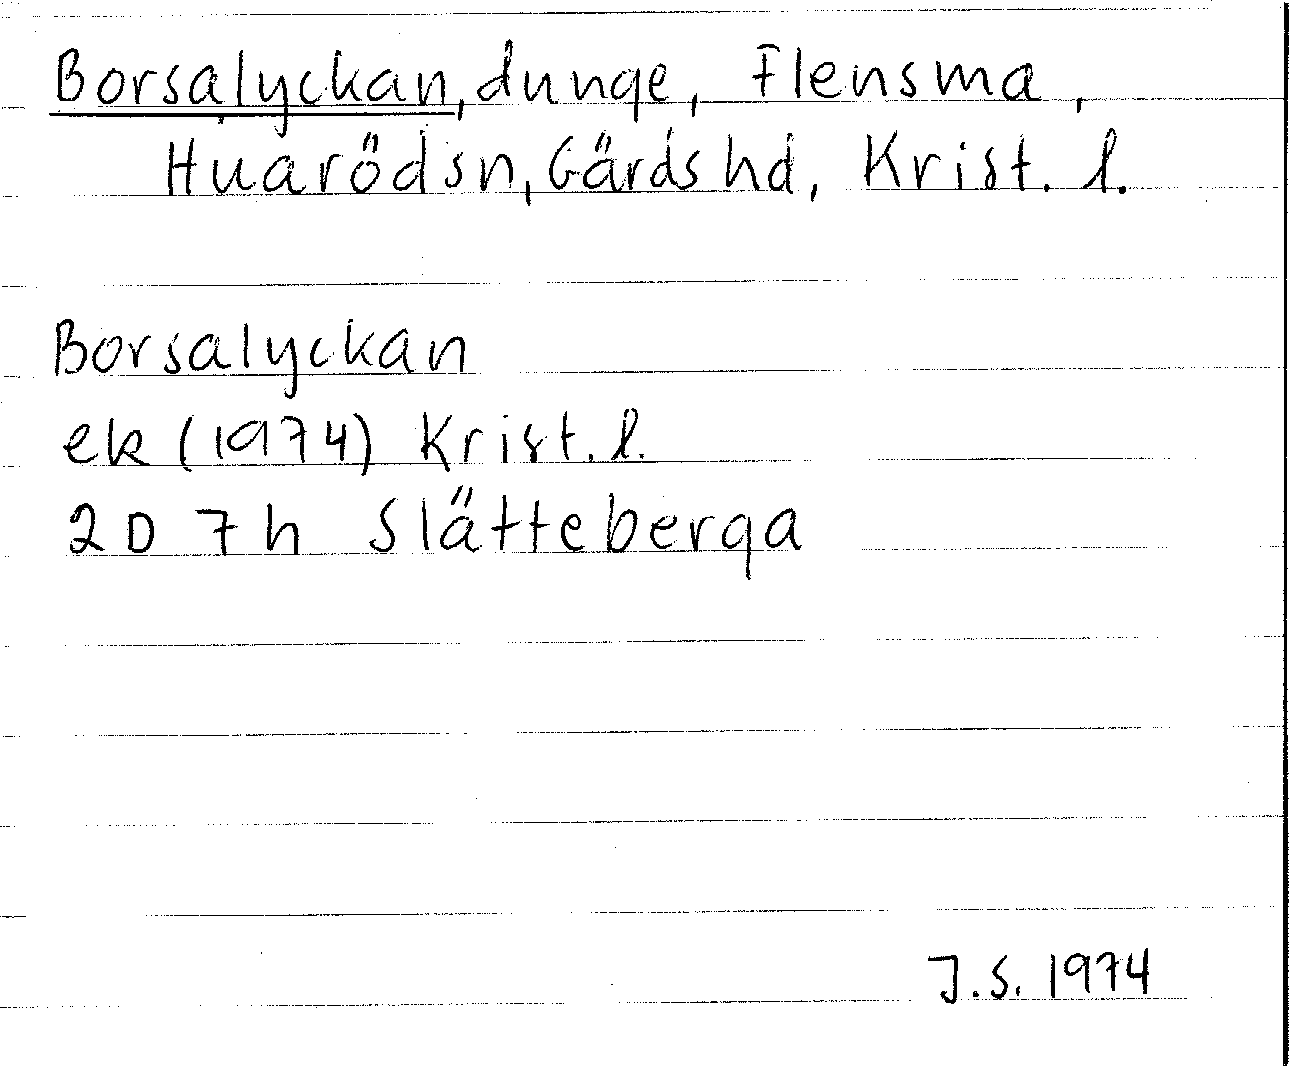 Borsalyckan, dunge, Flensma,
Huarödsn, Gärds hd, Krist. l.
Borsalyckan
ek (1974) Krist. l.
2D 7h Slätteberga
J.S. 1974